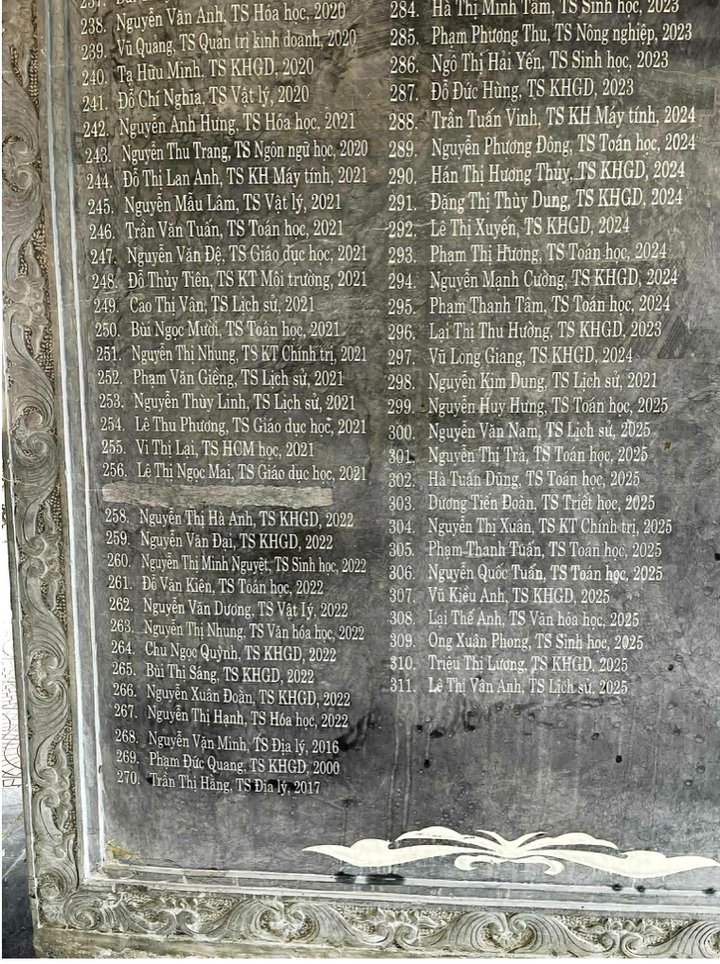 238. Nguyễn Vân Anh, TS Hóa học, 2020
239. Vũ Quang, TS Quản trị kinh doanh, 2020
240. Tạ Hữu Minh, TS KHGD, 2020
241. Đỗ Chí Nghĩa, TS Vật lý, 2020
242. Nguyễn Anh Hưng, TS Hóa học, 2021
243. Nguyễn Thu Trang, TS Ngôn ngữ học, 2020
244. Đỗ Thị Lan Anh, TS KH Máy tính, 2021
245. Nguyễn Mẫu Lâm, TS Vật lý, 2021
246. Trần Văn Tuấn, TS Toán học, 2021
247. Nguyễn Văn Đệ, TS Giáo dục học, 2021
248. Đỗ Thủy Tiên, TS KT Môi trường, 2021
249. Cao Thị Vân, TS Lịch sử, 2021
250. Bùi Ngọc Mười, TS Toán học, 2021
251. Nguyễn Thị Nhung, TS KT Chính trị, 2021
252. Phạm Văn Giềng, TS Lịch sử, 2021
253. Nguyễn Thùy Linh, TS Lịch sử, 2021
254. Lê Thu Phương, TS Giáo dục học, 2021
255. Vi Thị Lại, TS HCM học, 2021
256. Lê Thị Ngọc Mai, TS Giáo dục học, 2021
258. Nguyễn Thị Hà Anh, TS KHGD, 2022
259. Nguyễn Văn Đại, TS KHGD, 2022
260. Nguyễn Thị Minh Nguyệt, TS Sinh học, 2022
261. Đỗ Văn Kiên, TS Toán học, 2022
262. Nguyễn Văn Dương, TS Vật lý, 2022
263. Nguyễn Thị Nhung, TS Văn hóa học, 2022
264. Chu Ngọc Quỳnh, TS KHGD, 2022
265. Bùi Thị Sáng, TS KHGD, 2022
266. Nguyễn Xuân Đoàn, TS KHGD, 2022
267. Nguyễn Thị Hạnh, TS Hóa học, 2022
268. Nguyễn Văn Minh, TS Địa lý, 2016
269. Phạm Đức Quang, TS KHGD, 2000
270. Trần Thị Hằng, TS Địa lý, 2017
284. Hà Thị Minh Tâm, TS Sinh học, 2023
285. Phạm Phương Thu, TS Nông nghiệp, 2023
286. Ngô Thị Hải Yến, TS Sinh học, 2023
287. Đỗ Đức Hùng, TS KHGD, 2023
288. Trần Tuấn Vinh, TS KH Máy tính, 2024
289. Nguyễn Phương Đông, TS Toán học, 2024
290. Hán Thị Hương Thủy, TS KHGD, 2024
291. Đặng Thị Thùy Dung, TS KHGD, 2024
292. Lê Thị Xuyến, TS KHGD, 2024
293. Phạm Thị Hương, TS Toán học, 2024
294. Nguyễn Mạnh Cường, TS KHGD, 2024
295. Phạm Thanh Tâm, TS Toán học, 2024
296. Lại Thị Thu Hường, TS KHGD, 2023
297. Vũ Long Giang, TS KHGD, 2024
298. Nguyễn Kim Dung, TS Lịch sử, 2021
299. Nguyễn Huy Hưng, TS Toán học, 2025
300. Nguyễn Văn Nam, TS Lịch sử, 2025
301. Nguyễn Thị Trà, TS Toán học, 2025
302. Hà Tuấn Dũng, TS Toán học, 2025
303. Dương Tiến Đoàn, TS Triết học, 2025
304. Nguyễn Thị Xuân, TS KT Chính trị, 2025
305. Phạm Thanh Tuấn, TS Toán học, 2025
306. Nguyễn Quốc Tuấn, TS Toán học, 2025
307. Vũ Kiều Anh, TS KHGD, 2025
308. Lại Thế Anh, TS Văn hóa học, 2025
309. Ong Xuân Phong, TS Sinh học, 2025
310. Triệu Thị Lương, TS KHGD, 2025
311. Lê Thị Vân Anh, TS Lịch sử, 2025